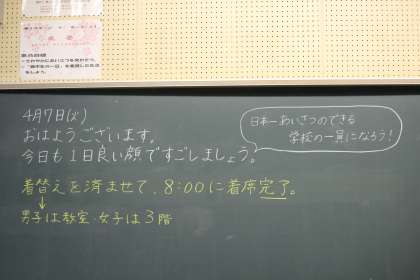 4月7日(火)
おはようございます。
今日も1日良い顔ですごしましょう。
日本一あいさつのできる
学校の一員になろう!
着替えを済ませて、8:00に着席完了。
↓
男子は教室・女子は3階